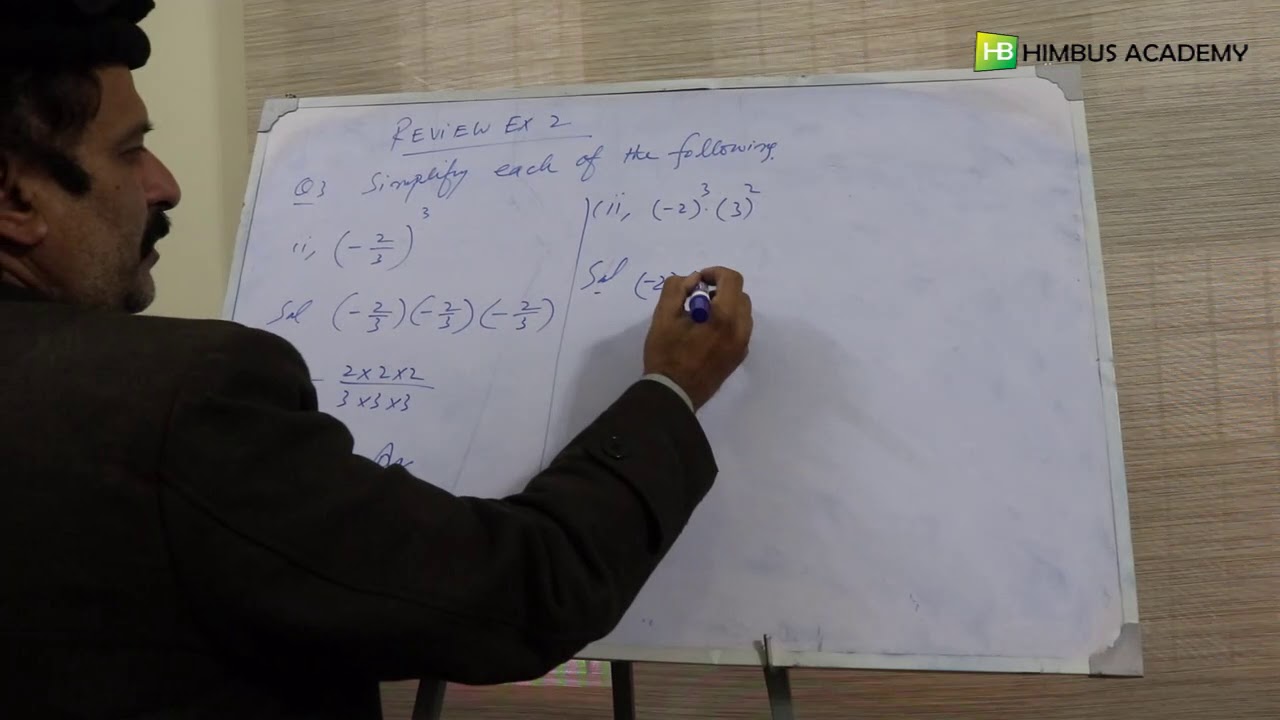 HB HIMBUS ACADEMY
REVIEW EX 2
Q3 Simplify each of the following.
ii, (-2/3)^3
Sol (-2/3)(-2/3)(-2/3)
- 2×2×2
3×3×3
(ii, (-2)^3·(3)^2
Sol (-2